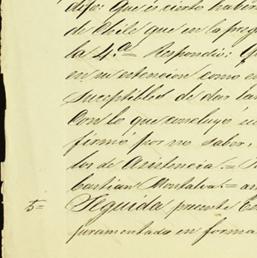 dijo: Que es cierto habia
de Chile que en la preg
la 4.ª Respondió: Q
en su estencion como en
suceptibles de dar tan
Con lo que concluyo
firmó por no saber,
tos de Asistencia.=
bastian Montalva.= an
5= Seguida presente
juramentada en forma